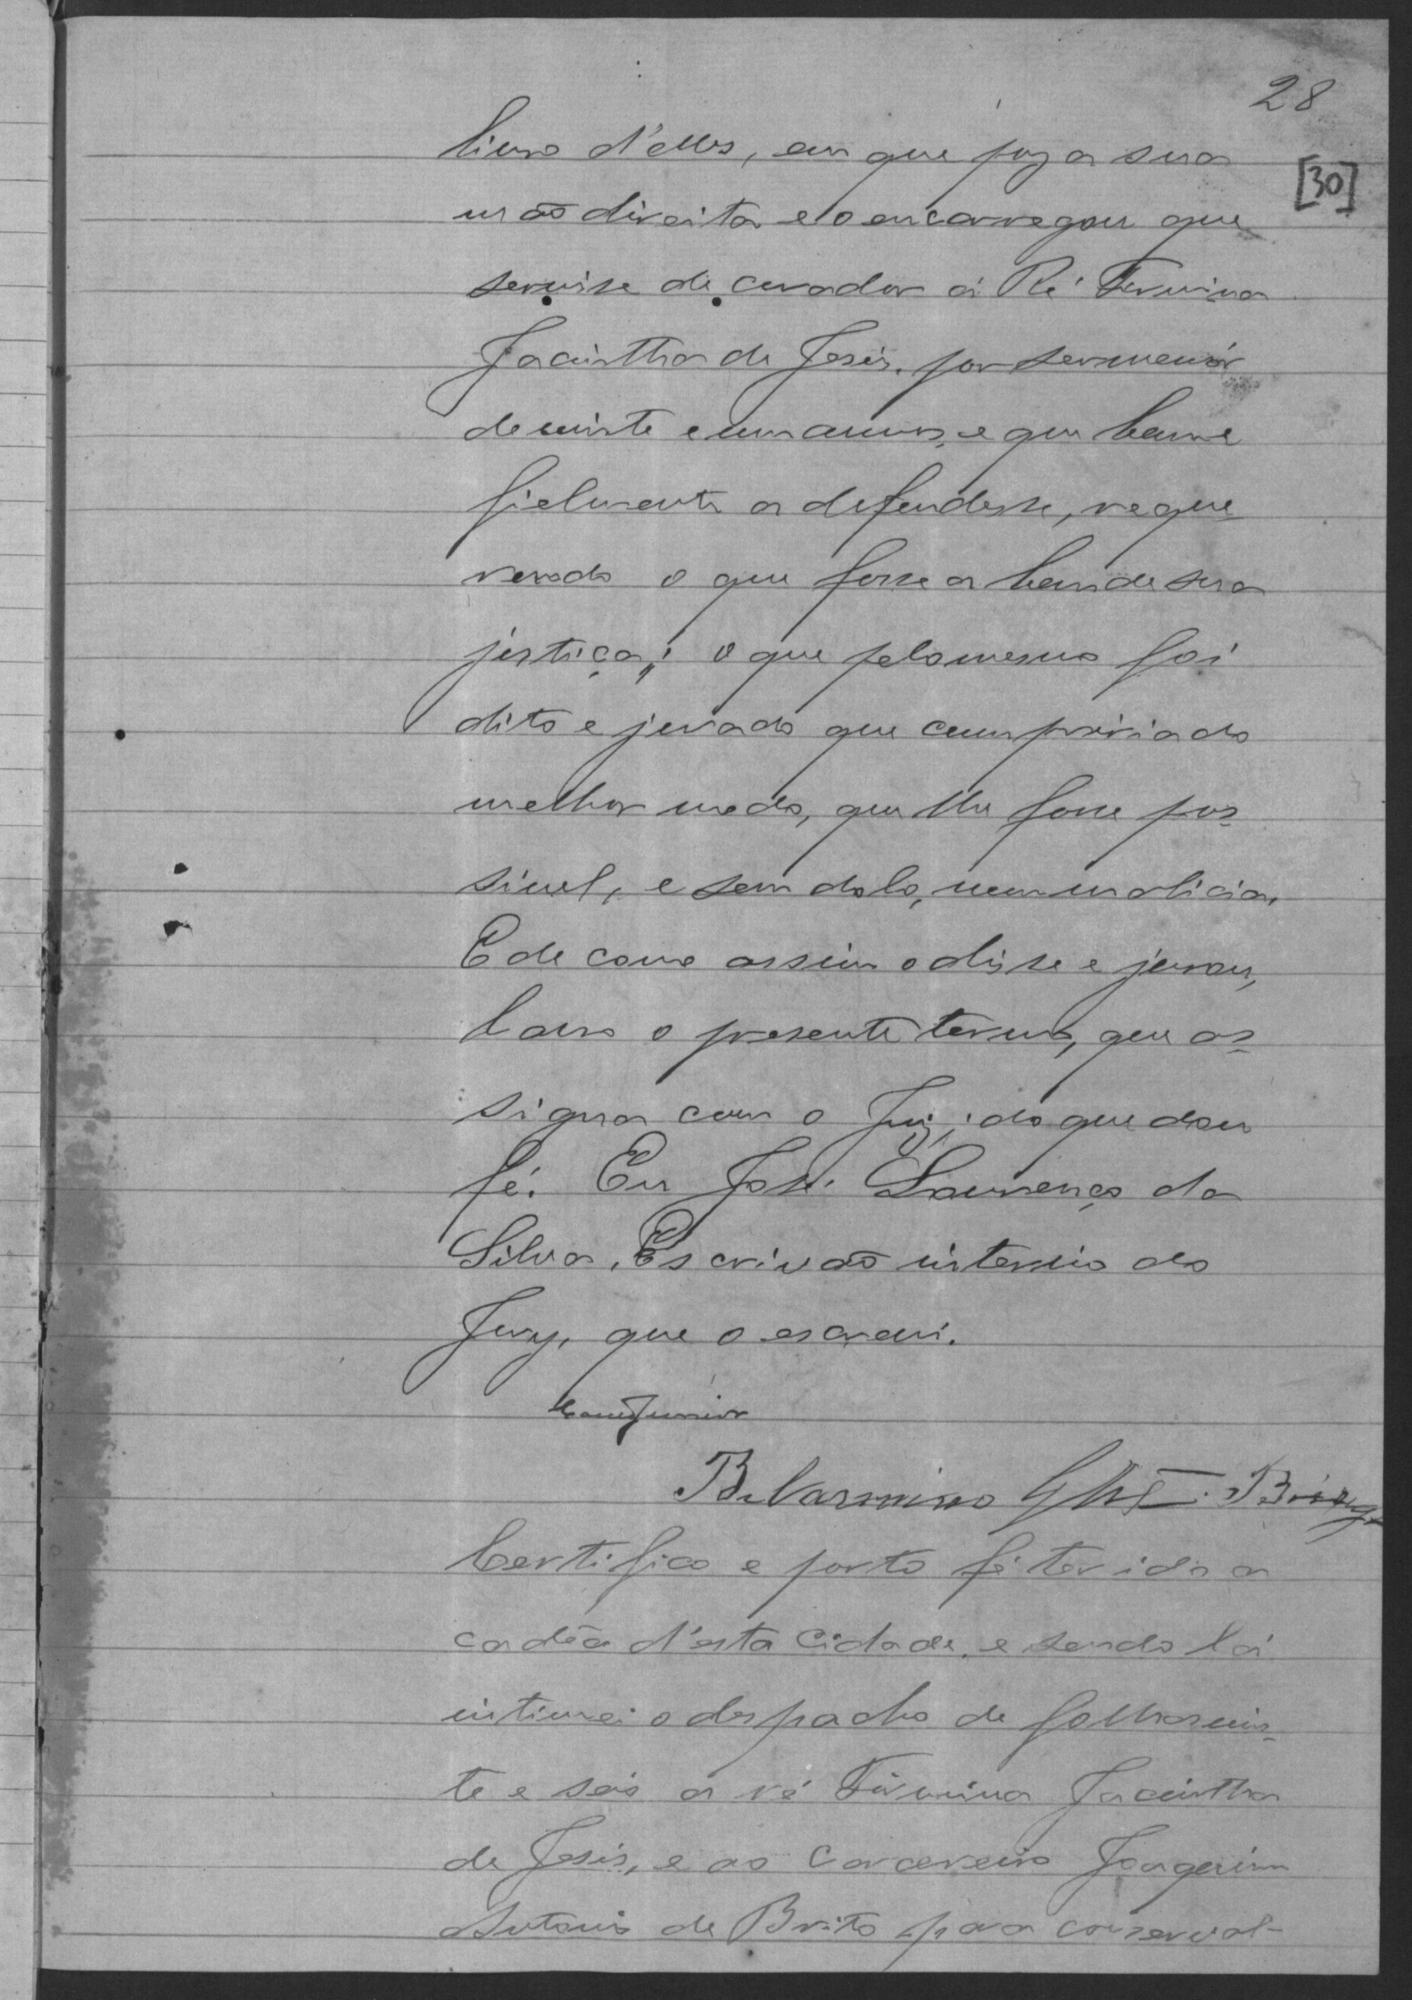 28
[30]
livro d'elles, em que poz a sua
mão direita e o encarregou que
servisse de curador á Ré Firmina
Jacintha de Jesus, por ser menór
de vinte e um annos, e que bem e
fielmente a defendesse, reque-
rendo o que fosse a bem de sua
justiça; o que pelo mesmo foi
dito e jurado que cumpriria do
melhor modo, que lhe fosse pos-
sivel, e sem dolo, nem malicia.
E de como assim o disse e jurou,
lavro o presente termo, que as-
signa com o Juiz; do que dou
fé. Eu José Lourenço da
Silva, Escrivão interino do
Jury, que o escrevi.
Junior
Belarmino
Certifico e porto fé ter ido a
cadêa d'esta Cidade, e sendo lá
intimei o despacho de folhas vin-
te e seis a ré Firmina Jacintha
de Jesus, e ao Carcereiro Joaquim
Antonio de Brito para conserval-